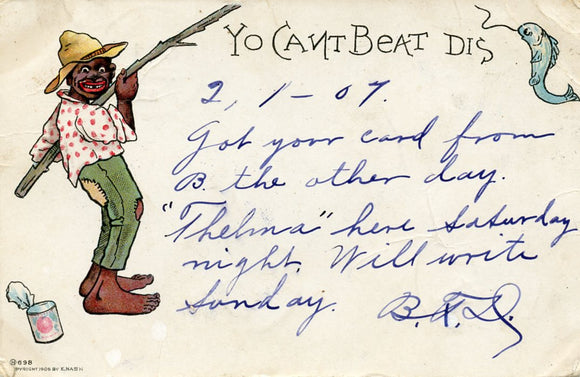 YO CAN'T BEAT DIS
2, 1 - 07.
Got your card from
B. the other day.
"Thelma" here Saturday
night. Will write
Sunday. B.F.D.
H 698
COPYRIGHT 1906 BY E. NASH